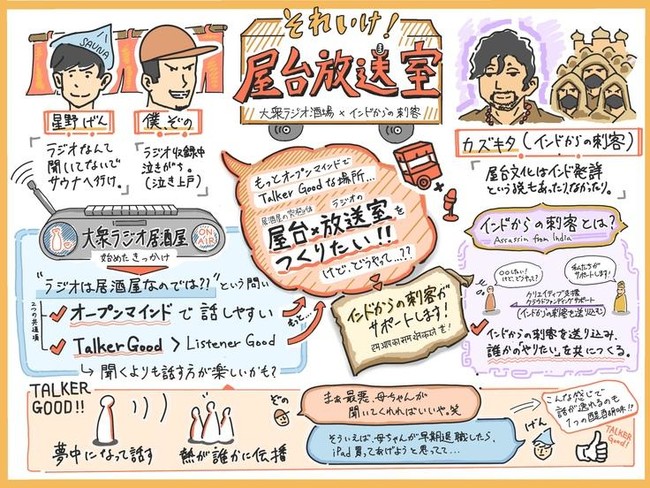 それいけ!
屋台放送室
大衆ラジオ酒場×インドからの刺客
SAUNA
星野げん
ラジオなんて
聞いてないで
サウナへ行け。
僕、ぞの
ラジオ収録中
泣きがち。
(泣き上戸)
カズキタ(インドからの刺客)
屋台文化はインド発祥
という説もあったりなかったり。
大衆ラジオ居酒屋
ON AIR
始めたきっかけ
"ラジオは居酒屋なのでは??"という問い
2つの共通項
オープンマインドで話しやすい
Talker Good > Listener Good
聞くよりも話す方が楽しいかも?
もっと…
もっとオープンマインドで
Talker Goodな場所…
居酒屋の
ラジオの
屋台×放送室を
つくりたい!!
けど、どうやって…??
インドからの刺客が
サポートします!
インドからの刺客とは?
Assassin from India
私たちが
サポートします!
クリエイティブ支援
クラウドファンディングサポート
(インドからの刺客を送り込む)
インドからの刺客を送り込み、
誰かの「やりたい」を共につくる。
TALKER
GOOD!!
夢中になって話す
熱が誰かに伝播
ぞの
まぁ最悪、母ちゃんが
聞いてくれればいいや。笑
そういえば、母ちゃんが早期退職したら、
iPad買ってあげようと思ってて…
げん
こんな感じで
話が逸れるのも
1つの醍醐味!!
TALKER
Good!